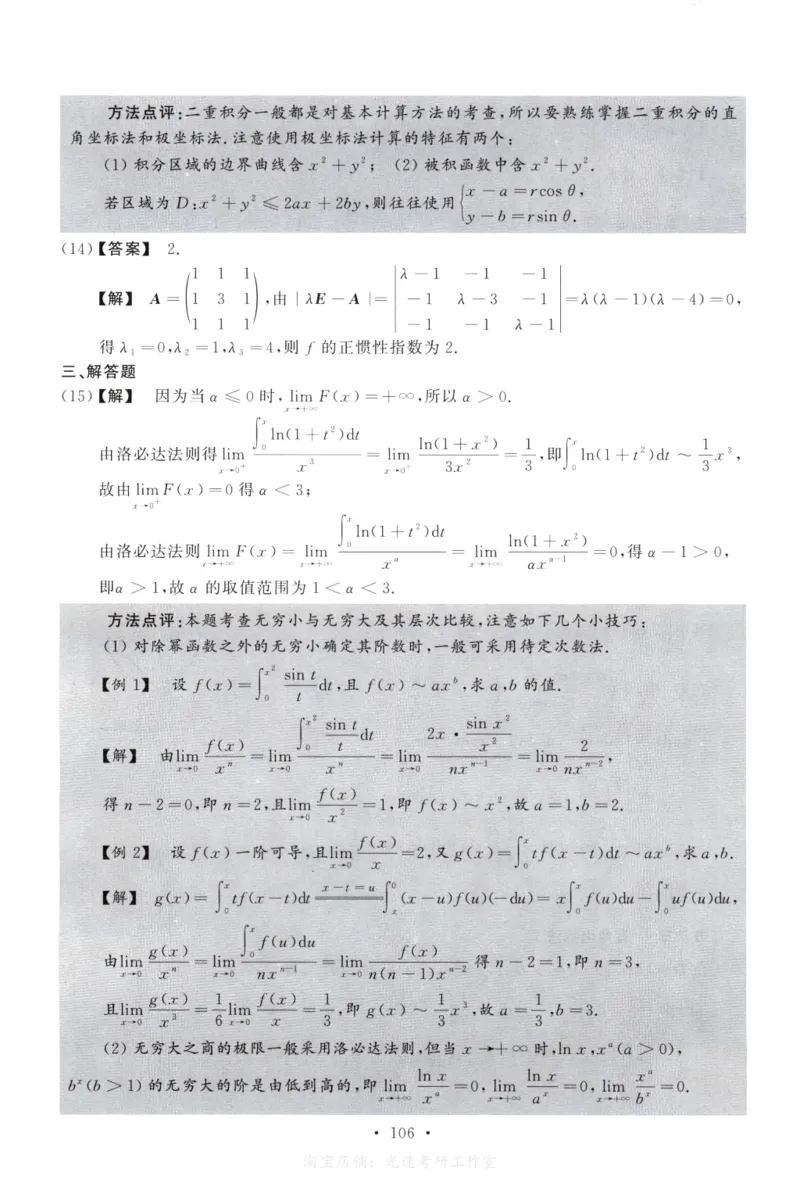 方法点评:二重积分一般都是对基本计算方法的考查,所以要熟练掌握二重积分的直
角坐标法和极坐标法.注意使用极坐标法计算的特征有两个:
(1) 积分区域的边界曲线含 x²+y²; (2) 被积函数中含 x²+y².
若区域为 D:x²+y²≤2ax+2by,则往往使用 {x-a=rcos θ, y-b=rsin θ.
(14)【答案】 2.
【解】 A=(1 1 1; 1 3 1; 1 1 1),由|λE-A|=|λ-1 -1 -1; -1 λ-3 -1; -1 -1 λ-1|=λ(λ-1)(λ-4)=0,
得 λ₁=0,λ₂=1,λ₃=4,则 f 的正惯性指数为 2.
三、解答题
(15)【解】 因为当 α≤0 时, lim_{x→+∞} F(x)=+∞,所以 α>0.
由洛必达法则得 lim_{x→0⁺} ∫₀ˣ ln(1+t²)dt / x³ = lim_{x→0⁺} ln(1+x²) / 3x² = 1/3,即 ∫₀ˣ ln(1+t²)dt ~ 1/3 x³,
故由 lim_{x→0⁺} F(x)=0 得 α<3;
由洛必达法则 lim_{x→+∞} F(x)= lim_{x→+∞} ∫₀ˣ ln(1+t²)dt / x^α = lim_{x→+∞} ln(1+x²) / αx^{α-1} =0,得 α-1>0,
即α>1,故 α 的取值范围为 1<α<3.
方法点评:本题考查无穷小与无穷大及其层次比较,注意如下几个小技巧:
(1) 对除幂函数之外的无穷小确定其阶数时,一般可采用待定次数法.
【例 1】 设 f(x)=∫₀^{x²} sin t / t dt,且 f(x)~ax^b,求 a,b 的值.
【解】 由 lim_{x→0} f(x)/xⁿ = lim_{x→0} ∫₀^{x²} sin t / t dt / xⁿ = lim_{x→0} 2x·(sin x² / x²) / nx^{n-1} = lim_{x→0} 2 / nx^{n-2},
得 n-2=0,即 n=2,且 lim_{x→0} f(x)/x² =1,即 f(x)~x²,故 a=1,b=2.
【例 2】 设 f(x) 一阶可导,且 lim_{x→0} f(x)/x =2,又 g(x)=∫₀ˣ tf(x-t)dt~ax^b,求 a,b.
【解】 g(x)=∫₀ˣ tf(x-t)dt =(x-t=u)= ∫ₓ⁰ (x-u)f(u)(-du)= x∫₀ˣ f(u)du-∫₀ˣ uf(u)du,
由 lim_{x→0} g(x)/xⁿ = lim_{x→0} ∫₀ˣ f(u)du / nx^{n-1} = lim_{x→0} f(x) / n(n-1)x^{n-2} 得 n-2=1,即 n=3,
且 lim_{x→0} g(x)/x³ = 1/6 lim_{x→0} f(x)/x = 1/3,即 g(x)~1/3 x³,故 a=1/3,b=3.
(2) 无穷大之商的极限一般采用洛必达法则,但当 x→+∞ 时,ln x,x^a(a>0),
b^x(b>1) 的无穷大的阶是由低到高的,即 lim_{x→+∞} ln x / x^a =0, lim_{x→+∞} ln x / a^x =0, lim_{x→+∞} x^a / b^x =0.
• 106 •
淘宝店铺:光速考研工作室